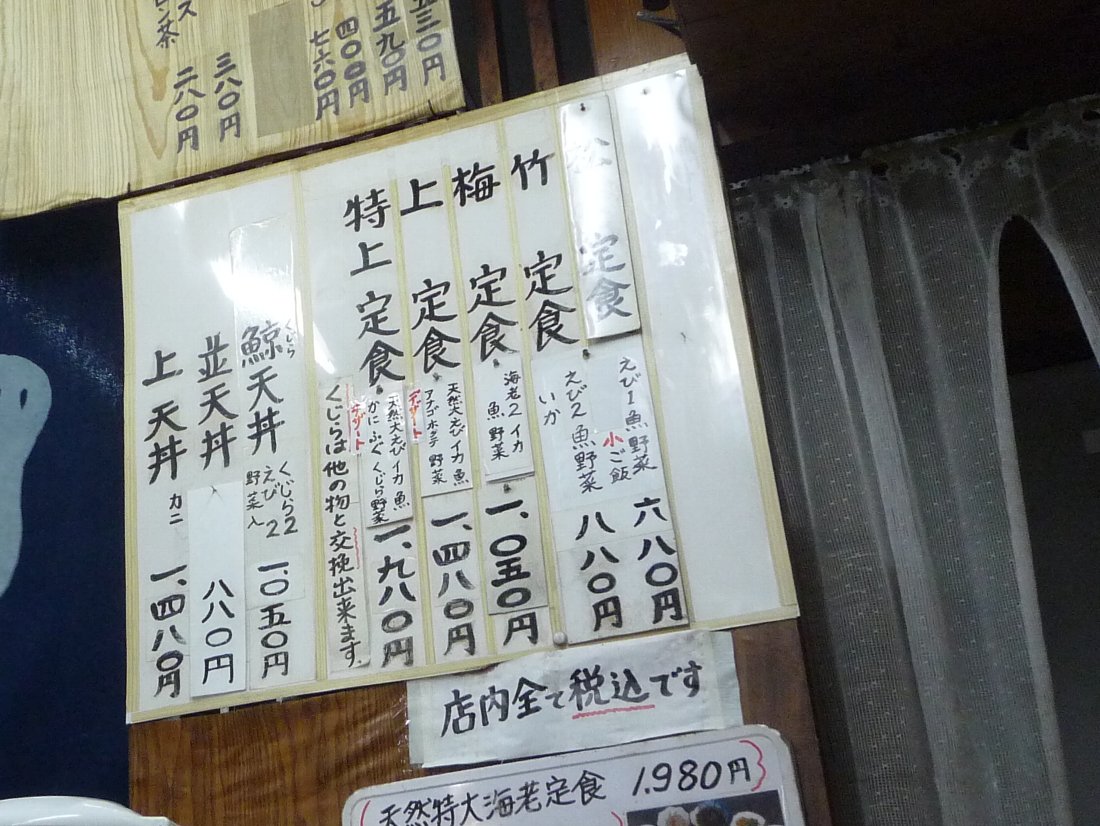 五三〇円
五九〇円
四〇〇円
七六〇円
三八〇円
二八〇円
松定食 えび1魚野菜 小ご飯 六八〇円
竹定食 えび2魚野菜 いか 八八〇円
梅定食 海老2イカ 魚野菜 一、〇五〇円
上定食 天然大えびイカ魚 アナゴホタテ野菜 デザート 一、四八〇円
特上定食 天然大えびイカ魚 かにふぐくじら野菜 デザート 一、九八〇円
くじらは他の物と交換出来ます。
鯨天丼 くじら くじら2 えび2 野菜入 一、〇五〇円
並天丼 八八〇円
上天丼 カニ 一、四八〇円
店内全て税込です
天然特大海老定食 1.980円